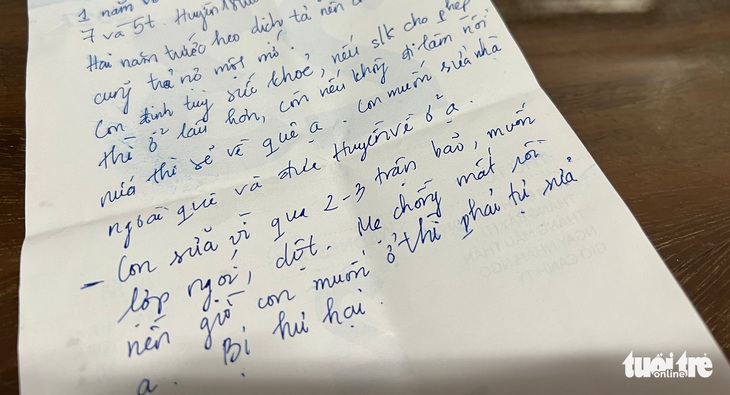 1 năm
7 và 5t. Huyền
Hai năm trước heo dịch tả nên
cũng trả nợ một mớ.
Con định tuỳ sức khoẻ, nếu slk cho phép
thì ở lâu hơn, còn nếu không đi làm nổi
nữa thì sẽ về quê ạ. Con muốn sửa nhà
ngoài quê và đưa Huyền về ở ạ.
- Con sửa vì qua 2-3 trận bảo, muốn
lớp ngói, dột. Mẹ chồng mất rồi
nên giờ con muốn ở thì phải tự sửa
ạ. Bị hư hại.
tuổi trẻ
online